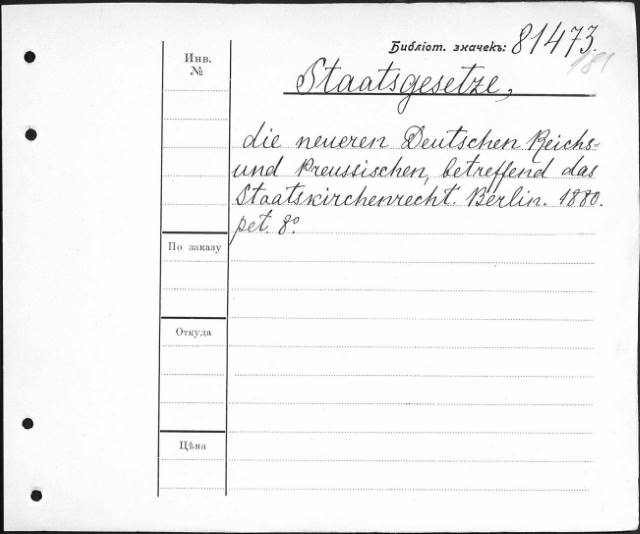 Библіот. значекъ: 81473.
181
Инв.
№
Staatsgesetze,
die neueren Deutschen Reichs-
und Preussischen, betreffend das
Staatskirchenrecht. Berlin. 1880.
pet. 8°.
По заказу
Откуда
Цѣна